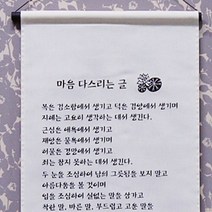 마음 다스리는 글
복은 검소함에서 생기고 덕은 겸양에서 생기며
지혜는 고요히 생각하는 데서 생긴다.
근심은 애욕에서 생기고
재앙은 물욕에서 생기며
허물은 경망에서 생기고
죄는 참지 못하는 데서 생긴다.
두 눈을 조심하여 남의 그릇됨을 보지 말고
아름다움을 볼 것이며
입을 조심하여 실없는 말을 삼가고
착한 말, 바른 말, 부드럽고 고운 말을